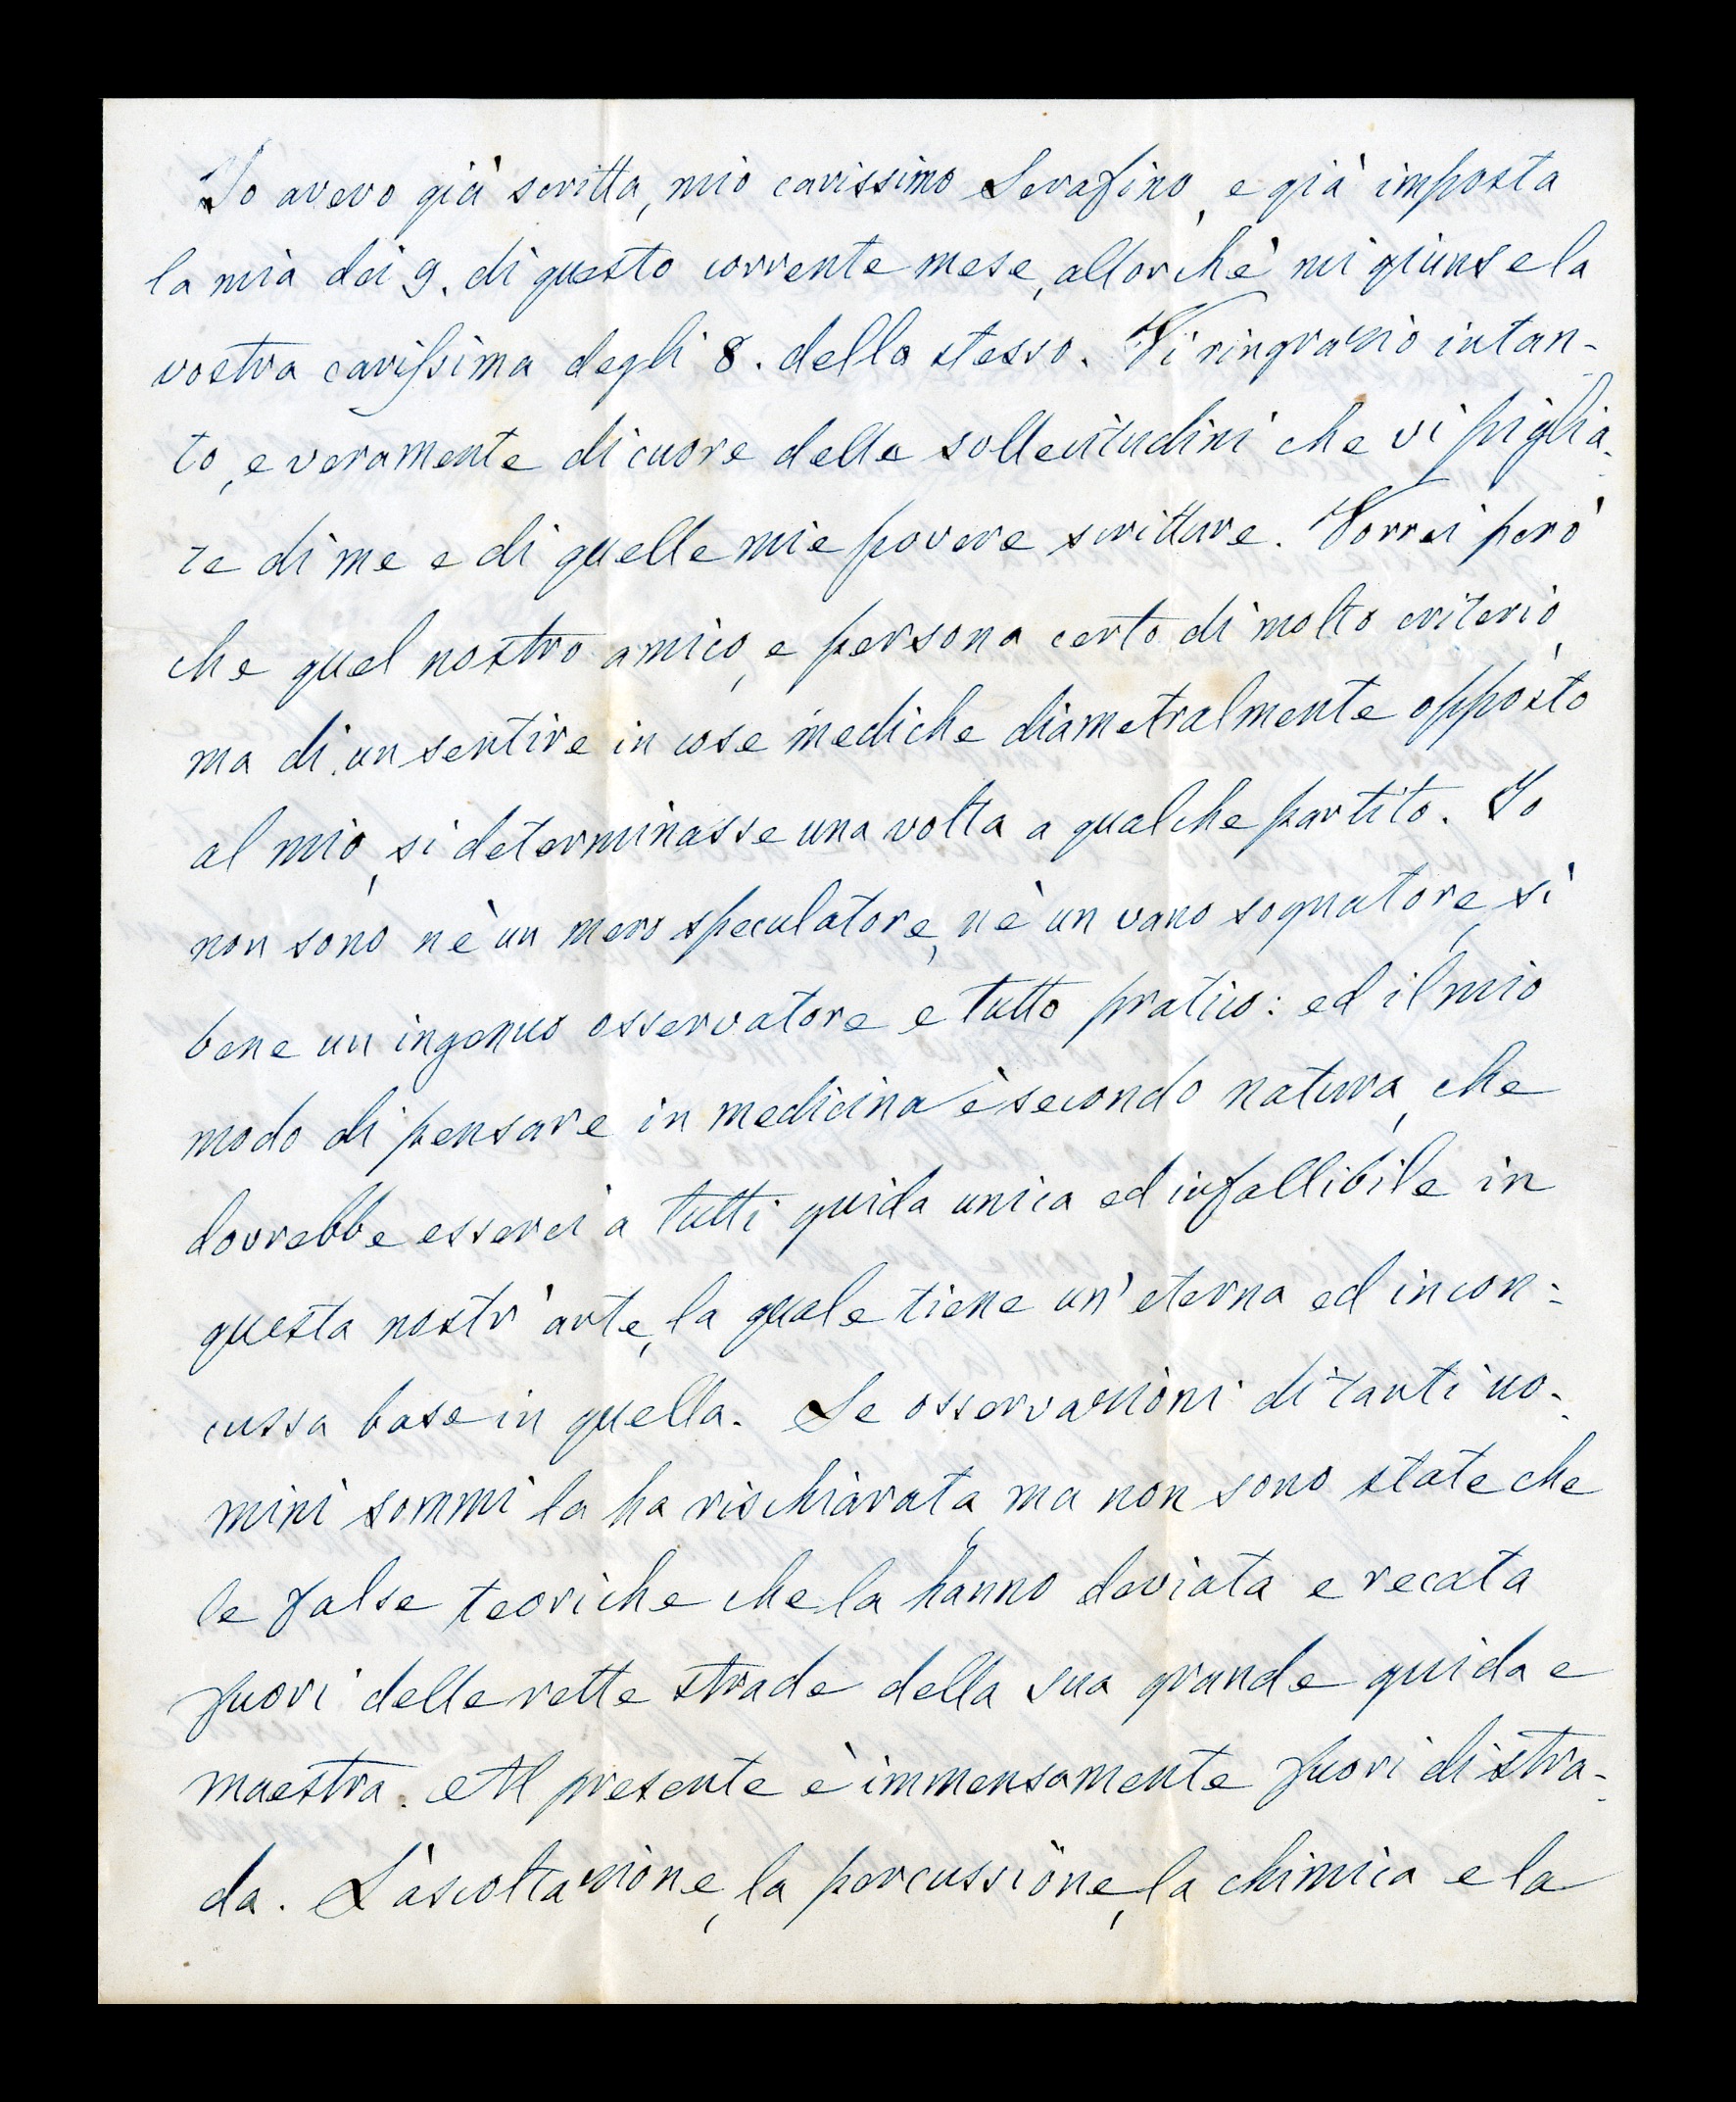 Io avevo già scritta, mio carissimo Serafino, e già imposta
la mia dei 9. di questo corrente mese, allorchè mi giunse la
vostra carissima degli 8. dello stesso. Vi ringrazio intan-
to, e veramente di cuore delle sollecitudini che vi piglia-
te di me e di quelle mie povere scritture. Vorrei però
che quel nostro amico, e persona certo di molto criterio,
ma di un sentire in cose mediche diametralmente opposto
al mio, si determinasse una volta a qualche partito. Io
non sono nè un mero speculatore, nè un vano sognatore, sì
bene un ingenuo osservatore e tutto pratico: ed il mio
modo di pensare in medicina è secondo natura, che
dovrebbe esserci a tutti guida unica ed infallibile in
questa nostr'arte, la quale tiene un'eterna ed incon-
cussa base in quella. Le osservazioni di tanti uo-
mini sommi la ha rischiarata, ma non sono state che
le false teoriche che la hanno deviata e recata
fuori delle rette strade della sua grande guida e
maestra. Al presente è immensamente fuori di stra-
da. L'ascoltazione, la percussione, la chimica e la